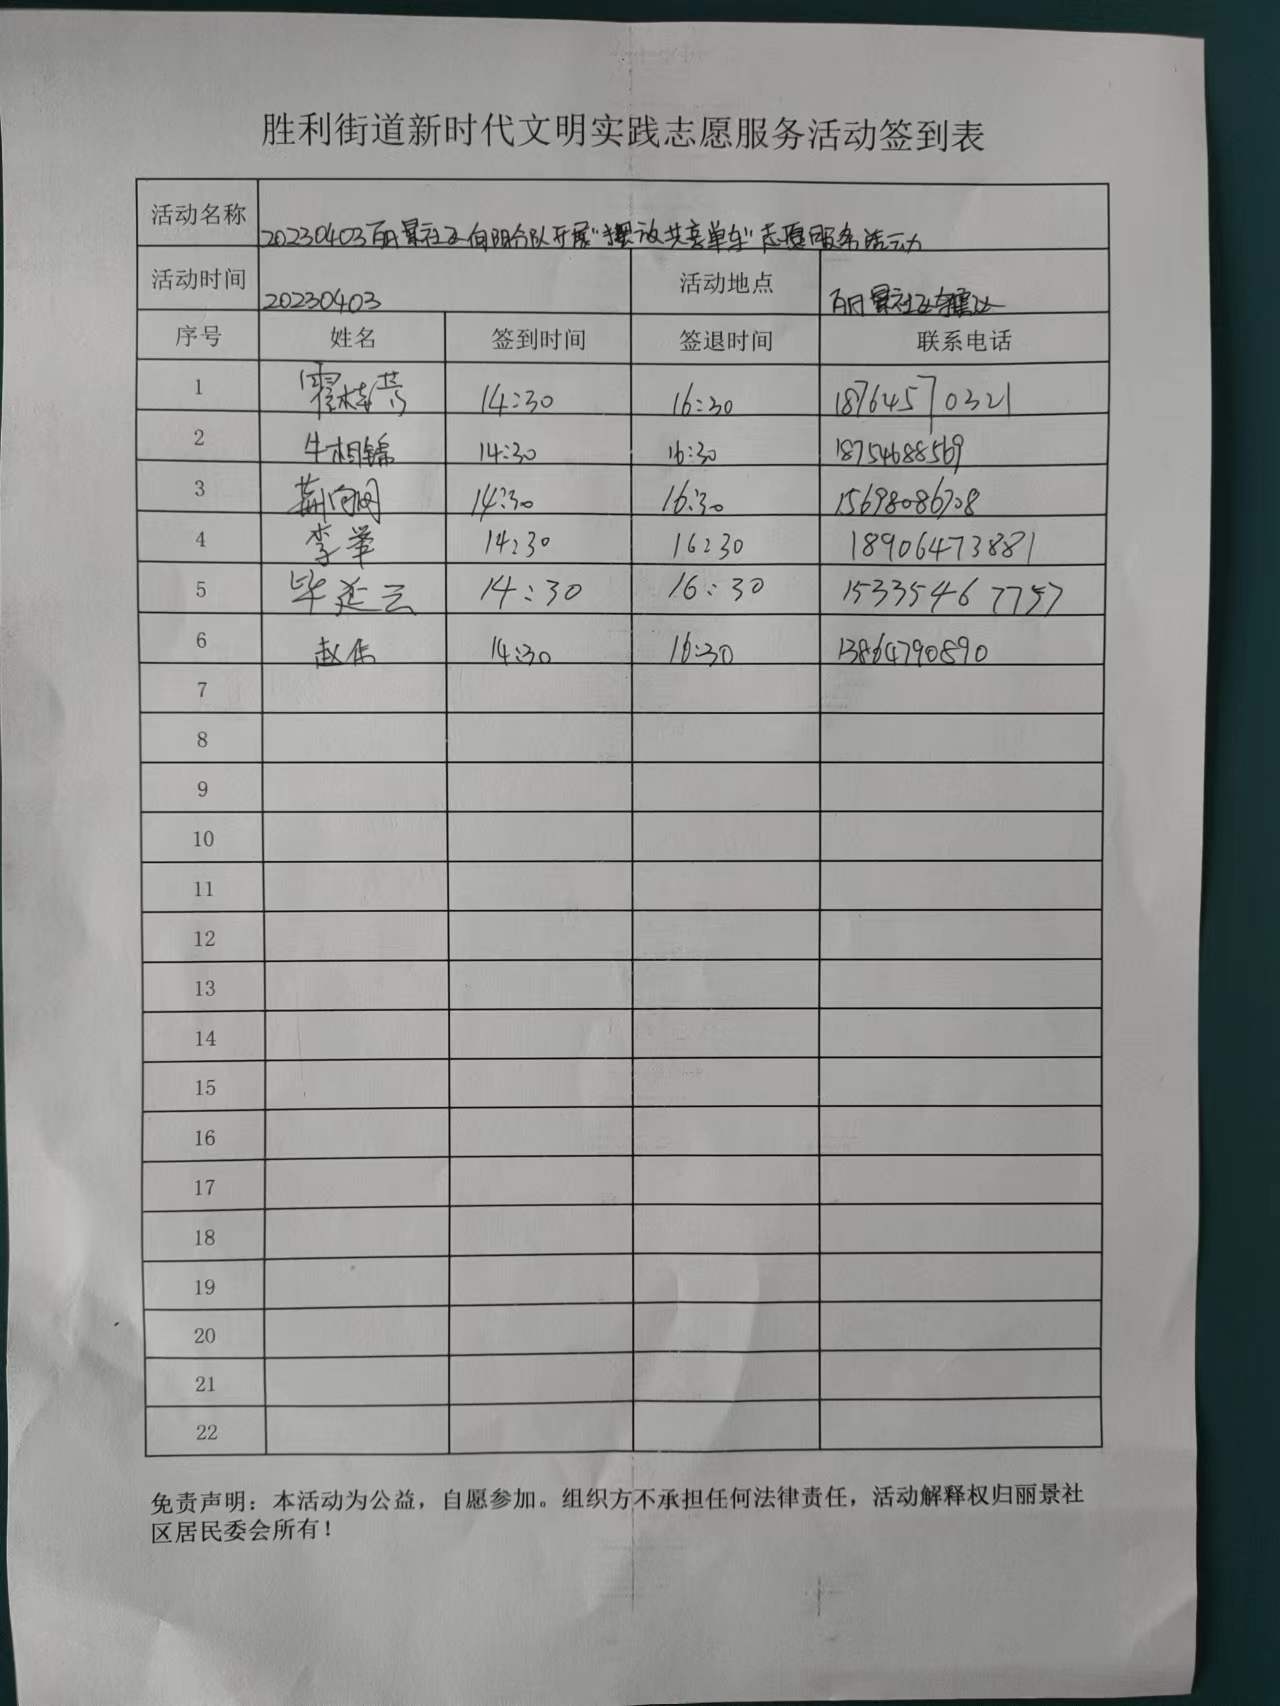 胜利街道新时代文明实践志愿服务活动签到表
活动名称 20230403丽景社区向阳分队开展“摆放共享单车”志愿服务活动
活动时间 20230403 活动地点 丽景社区辖区
序号 姓名 签到时间 签退时间 联系电话
1 霍桂芳 14:30 16:30 18764570321
2 牛相锦 14:30 16:30 18754688569
3 14:30 16:30 15698086708
4 李苹 14:30 16:30 18906473881
5 毕延云 14:30 16:30 15335467757
6 赵伟 14:30 16:30 13864790890
7
8
9
10
11
12
13
14
15
16
17
18
19
20
21
22
免责声明：本活动为公益，自愿参加。组织方不承担任何法律责任，活动解释权归丽景社
区居民委会所有！